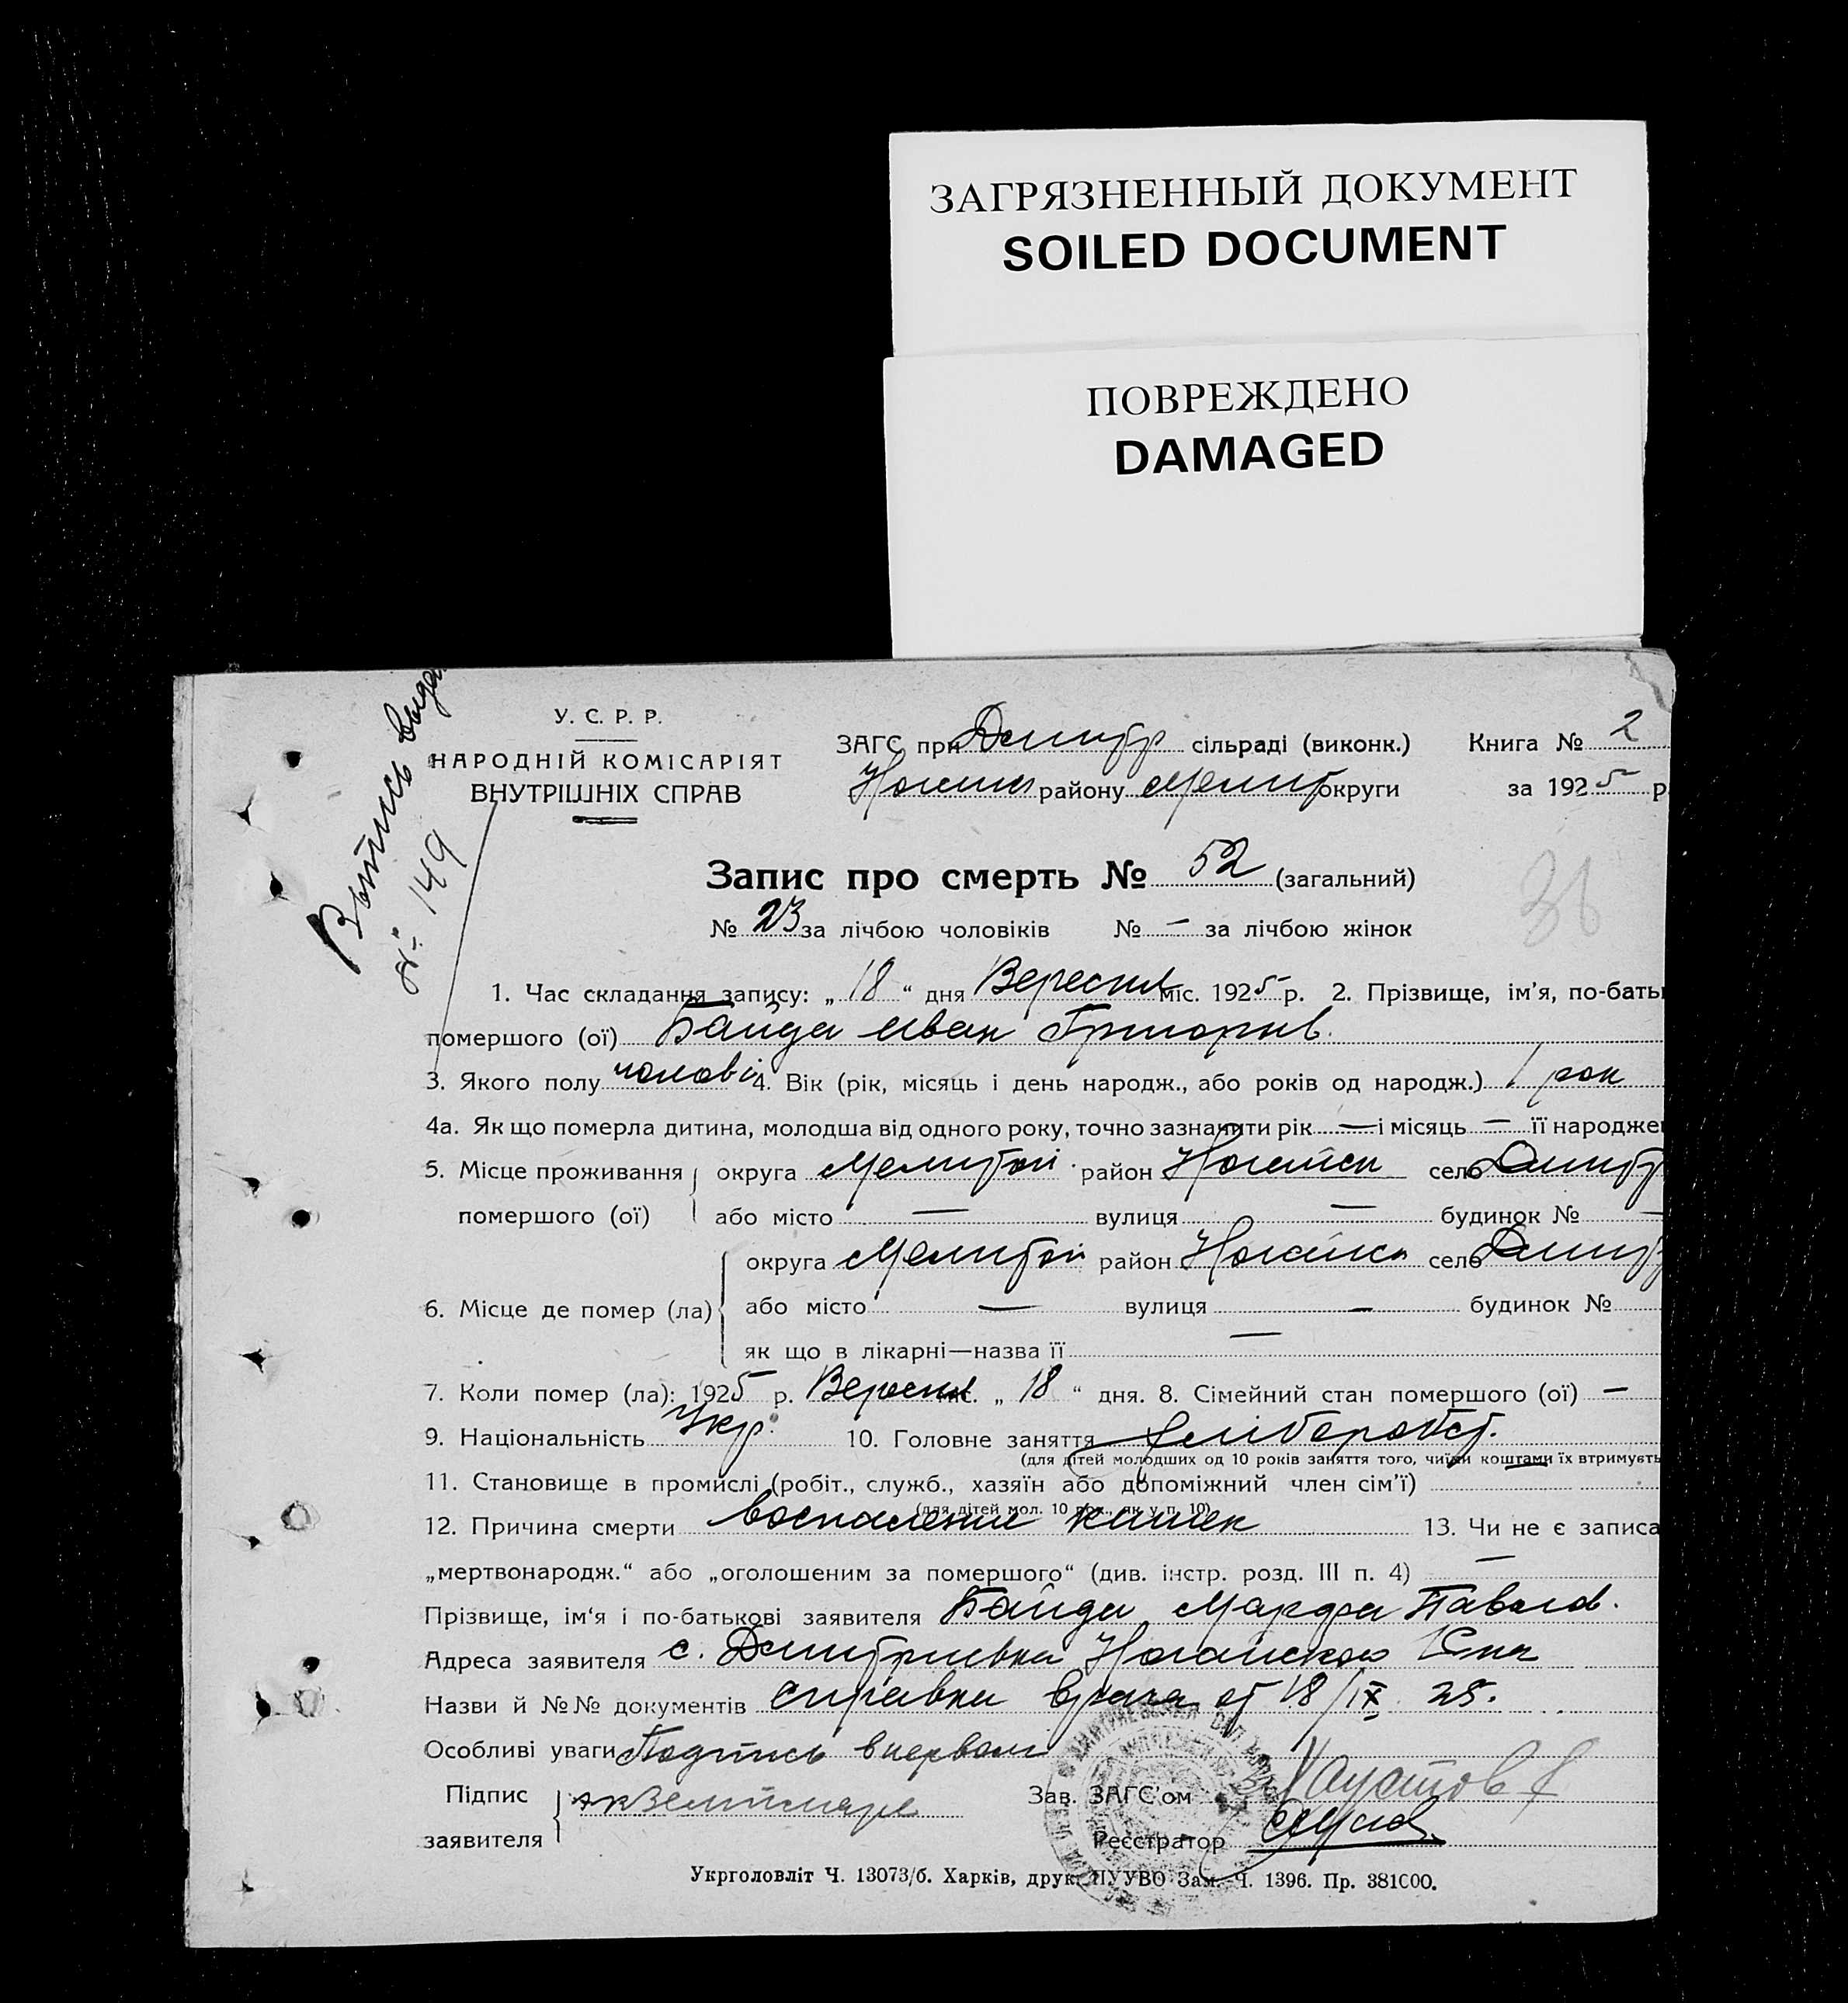 ЗАГРЯЗНЕННЫЙ ДОКУМЕНТ
SOILED DOCUMENT
ПОВРЕЖДЕНО
DAMAGED
Выпись выда
№ 149
У. С. Р. Р.
НАРОДНІЙ КОМІСАРІЯТ
ВНУТРІШНІХ СПРАВ
ЗАГС при Дмитр сільраді (виконк.) Книга № 2
району Мелит округи за 1925 р
Запис про смерть № 52 (загальний)
36
№ 23 за лічбою чоловіків № — за лічбою жінок
1. Час складання запису: „ 18 “ дня Вересня міс. 1925 р. 2. Прізвище, ім’я, по-баты
помершого (ої) Байда Иван Григорив.
3. Якого полу чолові 4. Вік (рік, місяць і день народж., або років од народж.) 1 рок
4а. Як що померла дитина, молодша від одного року, точно зазначити рік — і місяць — її народже
5. Місце проживання округа Мелитой район Ногайск село Дмитр
помершого (ої) або місто — вулиця — будинок № —
округа Мелитой район Ногайск село Дмитр
6. Місце де помер (ла) або місто — вулиця — будинок №
як що в лікарні—назва її —
7. Коли помер (ла): 1925 р. Вересня міс. „ 18 “ дня. 8. Сімейний стан помершого (ої) —
9. Національність Укр. 10. Головне заняття
(для дітей молодших од 10 років заняття того, чиїми коштами їх втримуєть
11. Становище в промислі (робіт., служб., хазяїн або допоміжний член сім’ї)
(для дітей мол. 10 рок., як у п. 10)
12. Причина смерти воспаление кишек 13. Чи не є записа
„мертвонародж.“ або „оголошеним за помершого“ (див. інстр. розд. III п. 4) —
Прізвище, ім‘я і по-батькові заявителя Байда Марфа Павлов.
Адреса заявителя с. Дмитриевка Ногайского
Назви й №№ документів справка врача от 18/IX 25.
Особливі уваги Подпись в первом
Підпис
заявителя
Зав. ЗАГС’ом Хаустов
Реєстратор
Укрголовліт Ч. 13073/б. Харків, друк. ПУУВО Зам. Ч. 1396. Пр. 381000.